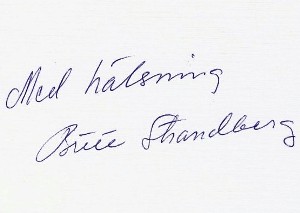 Med hälsning
Britt Strandberg